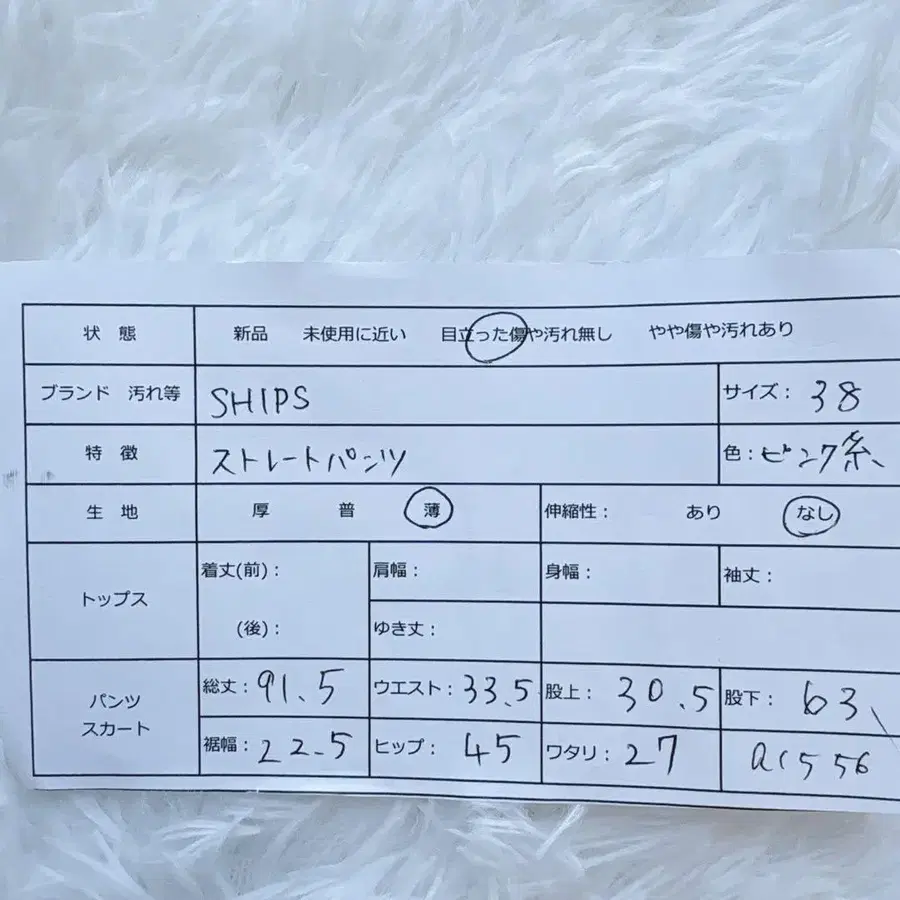 状 態 新品 未使用に近い 目立った傷や汚れ無し やや傷や汚れあり
ブランド 汚れ等 SHIPS サイズ: 38
特 徴 ストレートパンツ 色: ピンク系
生 地 厚 普 薄 伸縮性: あり なし
トップス 着丈(前): 肩幅: 身幅: 袖丈:
(後): ゆき丈:
パンツ スカート
総丈: 91.5 ウエスト: 33.5 股上: 30.5 股下: 63
裾幅: 22.5 ヒップ: 45 ワタリ: 27